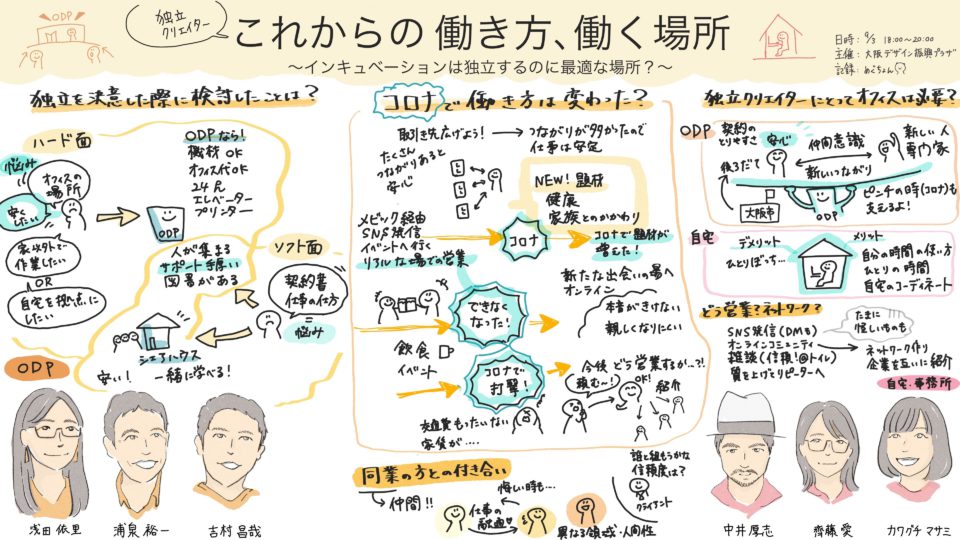 ODP
独立
クリエイター
これからの 働き方、働く場所
～インキュベーションは独立するのに最適な場所？～
日時：9/3 18:00〜20:00
主催：大阪デザイン振興プラザ
独立を決意した際に検討したことは？
ハード面
悩み
オフィスの
場所
安くしたい
家以外で
作業したい
OR
自宅を拠点に
したい
ODP
ODPなら！
機材OK
オフィス代OK
24h
エレベーター
プリンター
人が集まる
サポート手厚い
図書がある
ソフト面
契約書
仕事の仕方
=
悩み
シェアハウス
安い！ 一緒に学べる！
ODP
浅田 依里
浦泉 裕一
吉村 昌哉
コロナで働き方は変わった？
取引き先広げよう！
つながりが多かったので
仕事は安定
たくさん
つながりあると
安心
NEW！題材
健康
家族とのかかわり
メビック経由
SNS発信
イベントへ行く
リアルな場での営業
コロナ
コロナで題材が
増えた！
できなく
なった！
新たな出会いの場へ
オンライン
本音がきけない
親しくなりにくい
飲食
イベント
コロナで
打撃！
今後どう営業するか…？！
頼む〜！
OK！
紹介
もったいない
家賃が....
同業の方との付き合い
仲間!!
仕事の
悔しい時も…
異なる領域・人間性
誰と組もうかな
信頼度は？
クライアント
独立クリエイターにとってオフィスは必要？
ODP
契約の
とりやすさ
安心
後ろだて
大阪市
仲間意識
新しいつながり
新しい人
専門家
ODP
ピンチの時(コロナ)も
支えるよ！
自宅
デメリット
ひとりぼっち…
メリット
自分の時間の使い方
ひとりの時間
自宅のコーディネート
どう営業？ネットワーク？
SNS発信(DMも)
オンラインコミュニティ
雑談(信頼！@トイレ)
質を上げてリピーターへ
たまに
怪しいものも
ネットワーク作り
企業を互いに紹介
自宅・事務所
中井 厚志
齊藤 愛
カワグチ マサミ